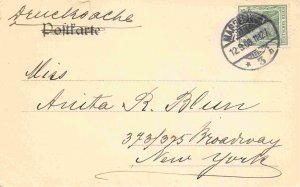 Drucksache
Postkarte
Miss
Anita R. Blun
373/375 Broadway
New York